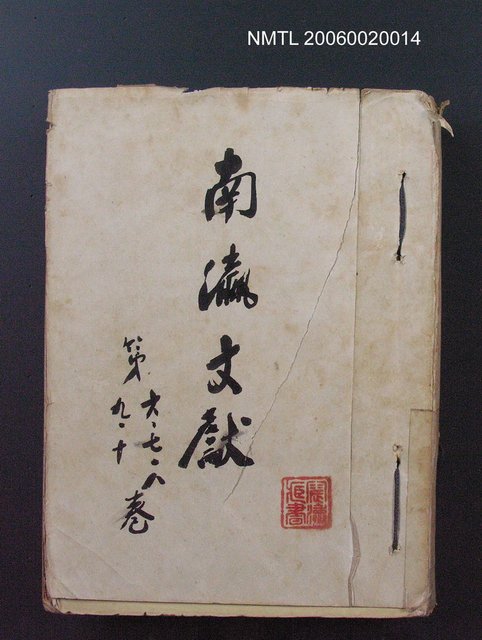 NMTL 20060020014
南瀛文獻
第六、七、八
九、十
卷